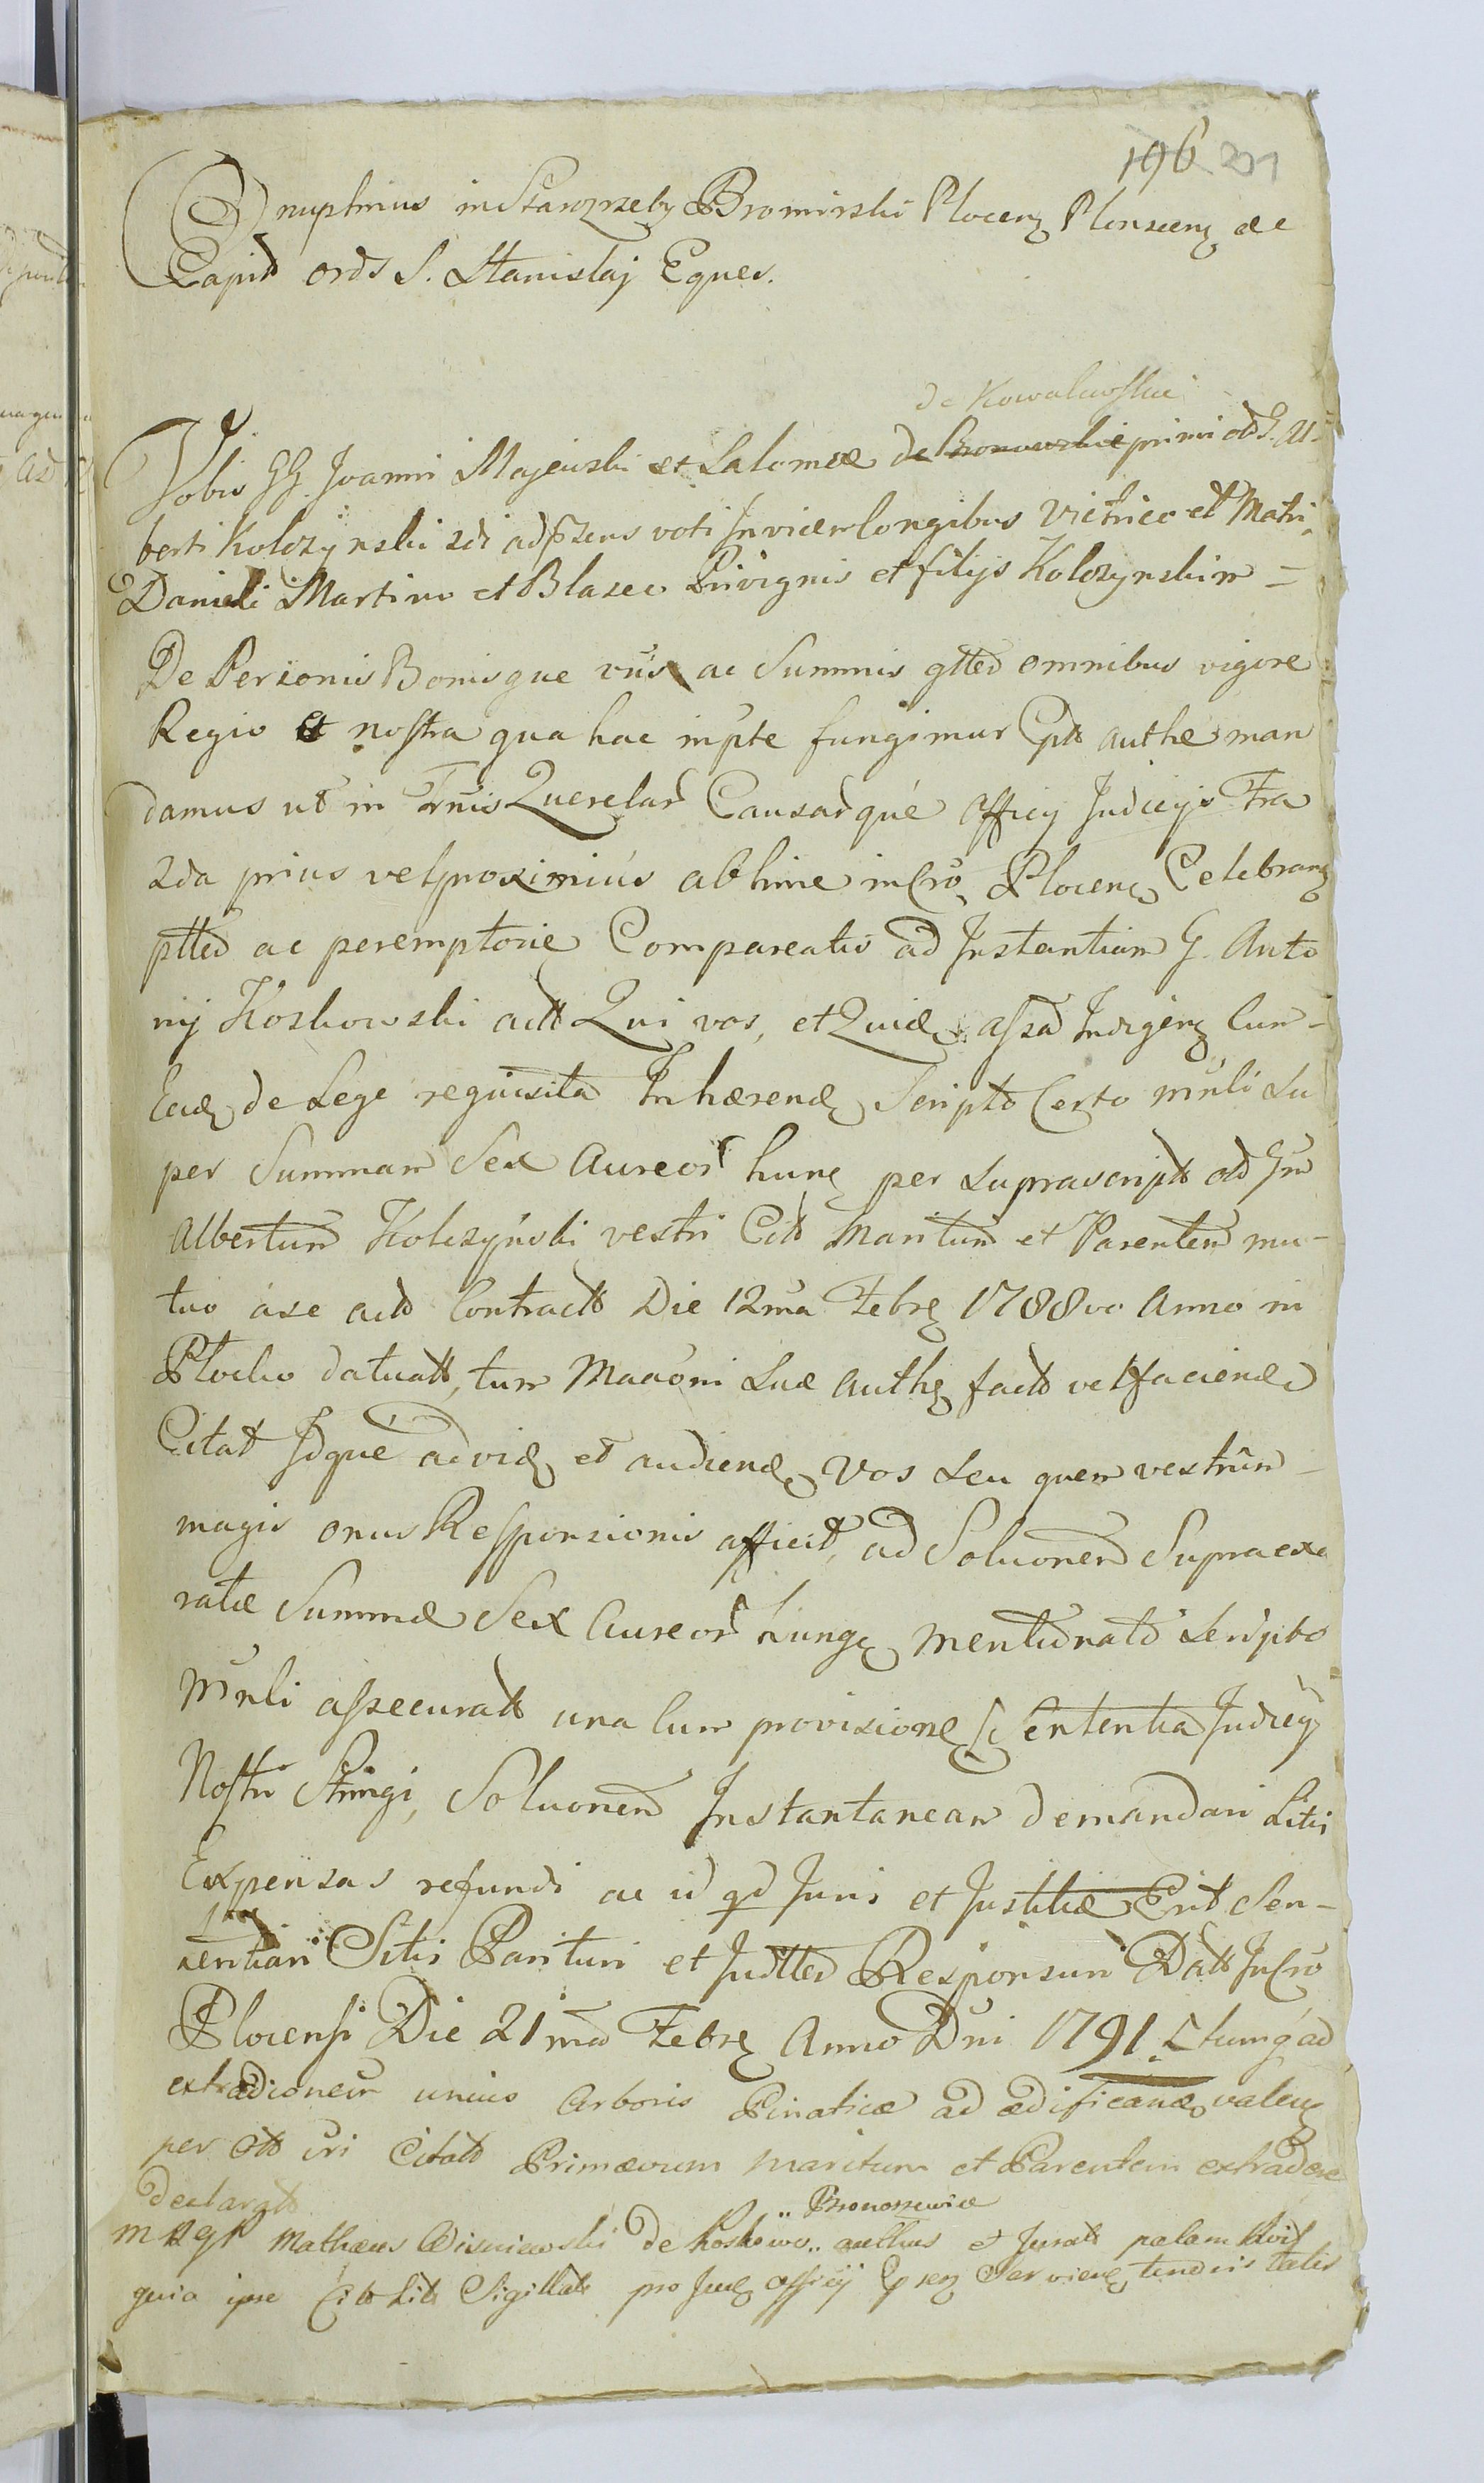 196 291
Onuphrius in Starozreby Bromirski Plocens Plonscens &c
Capit ords S. Stanislaj Eques.
de Kowalewskie
Vobis GG. Joanni Majewski et Salomeæ de primi olb G. Al-
berti Kolczynski 2di adpræns voti Invicem Congibus Victrico et Matri
Danieli Martino et Blaseo Privignis et filijs Kolczynskim =
De Personis Bonisque vris ac Summis gttes omnibus vigore
Regio et nostra qua hac in pte fungimur Cptt authe man
damus ut in Trnis Querelar Causarque Officij Judicijs Fra
2da prius vel proximius abhinc in Cro Plocens Celebrans
pttes ac peremptorie Compareatis ad Instantiam G. Anto
nij Koskowski actt Qui vos, et Quidq assa Indigenq Cum
Eadq de Lege requisita Inhærendq Scripto Certo mnli su
per Summam Sex Aureor hung per suprascript olb Gm
Albertum Kolczynski vestri Citt Maritum et Parentem mu-
tuo a se actt Contractt Die 12ma Febrs 1788vo Anno in
Plocko datuatt, tum Maaoni suæ authq factt vel faciendæ
Citat Idque ad vidq et audiendq Vos seu quem vestrûm
magis onus Responsionis afficit, ad Soluonem Supraexa
ratæ Summæ Sex Aureor hungq mentionato Scripto
Mnli assecuratt una cum provisione Sententia Judicij
Nostri Stringi, Soluonem Instantaneam demandari Litis
Expensas refundi ac id qd Juris et Justitiæ Erit Sen-
tentiari Sitis Parituri et Judtter Responsuri Datt In Cro
Plocensi Die 21ma Febrs Anno Dni 1791. tumq ad
extradionem unius Arboris Pinaticæ ad ædificandq valens
per Olb vri Citatt Primævum maritum et Parentem extradere
declaratt
.. Bronoszewice
Mathæus Wisniewski de Koskowo.. authus et Juratt palam
quia ipse Citt Litt Sigillatt pro Judq officij serviens talis